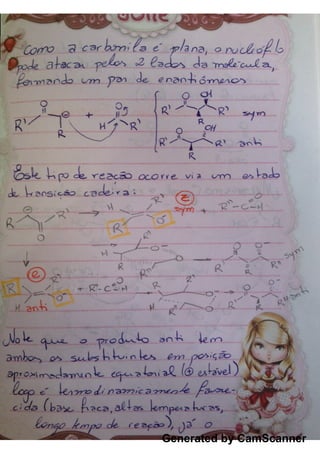 Como a carbonila é plana, o nucleófilo
pode atacar pelos 2 lados da molécula,
formando um par de enantiômeros
O O O OH
R' ⊖ + H R" R' R" syn
R R
O OH
R' R" anti
R
Este tipo de reação ocorre via um estado
de transição cadeira:
⊖ R' → H R' Z syn + R"-C-H
R O R O⁻
E
R R' + R'-C-H
H anti O⁻
Note que o produto anti tem
ambos os substituintes em posição
aproximadamente equatorial (⊕ estável)
logo é termodinamicamente favore-
cida (base fraca, altas temperaturas,
longo tempo de reação), já o
Generated by CamScanner